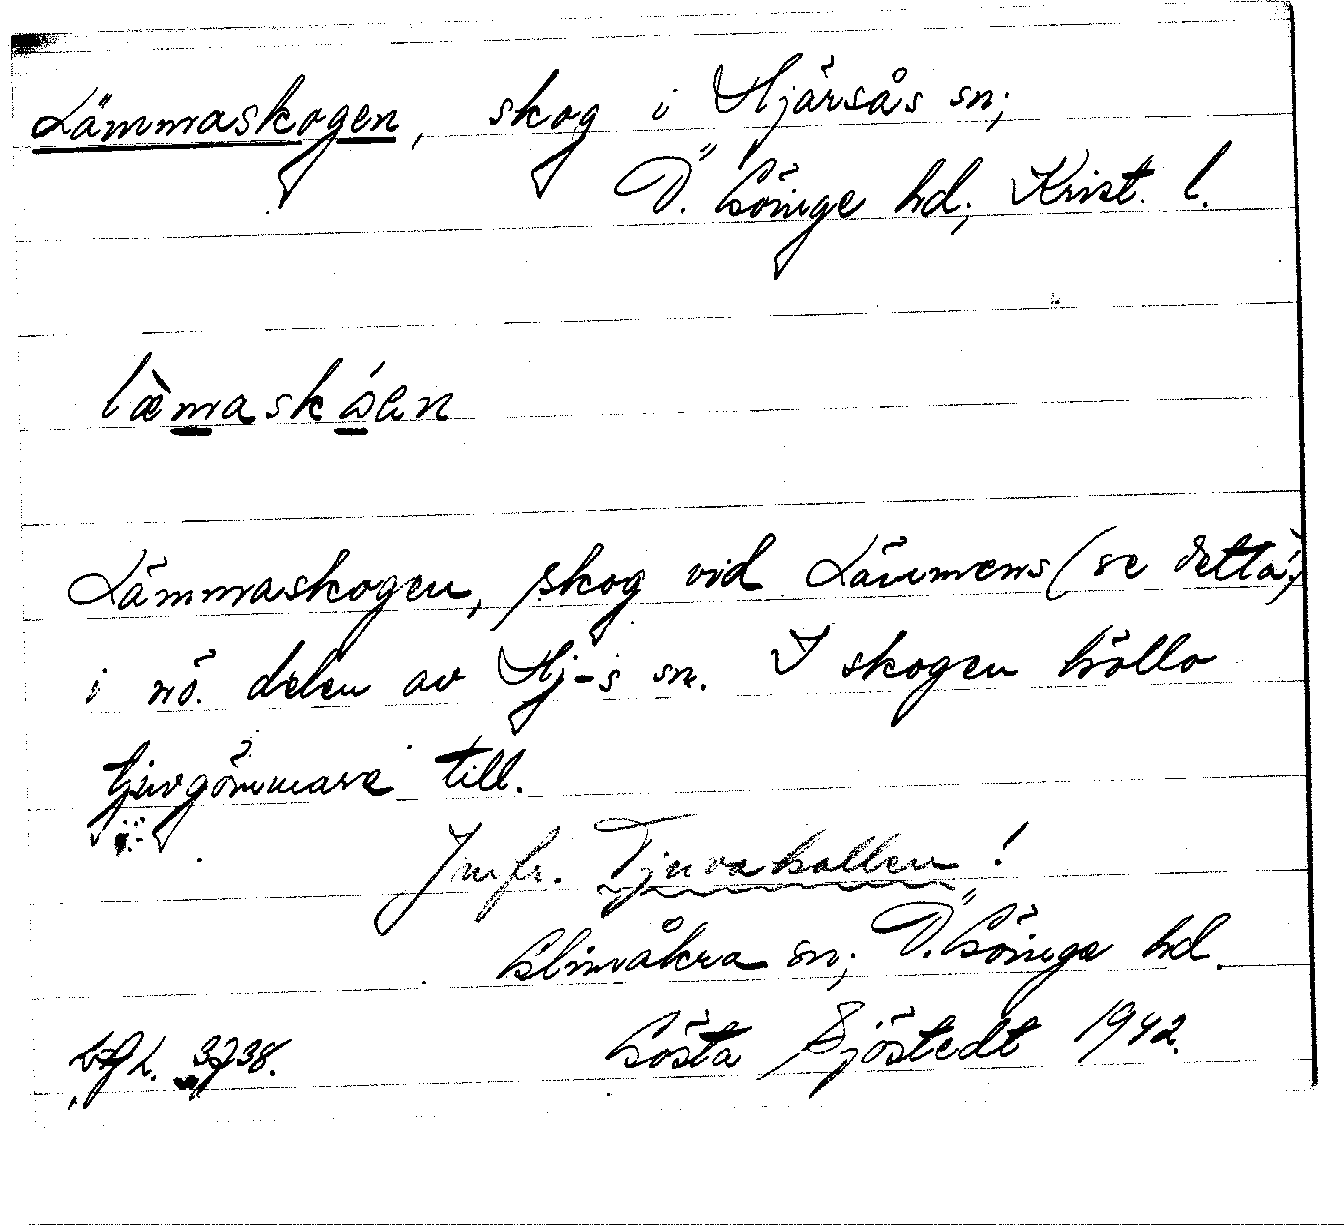 Lämmaskogen, skog i Hjärsås sn;
Ö. Göinge hd; Krist. l.
læ̀maskóen
Lämmaskogen, skog vid Lämmens (se detta)
i nö. delen av Hj-s sn. I skogen höllo
tjuvgömmare till.
Jmfr. Tjuvahallen!
Glimåkra sn; Ö. Göinge hd.
3738. Gösta Sjöstedt 1942.